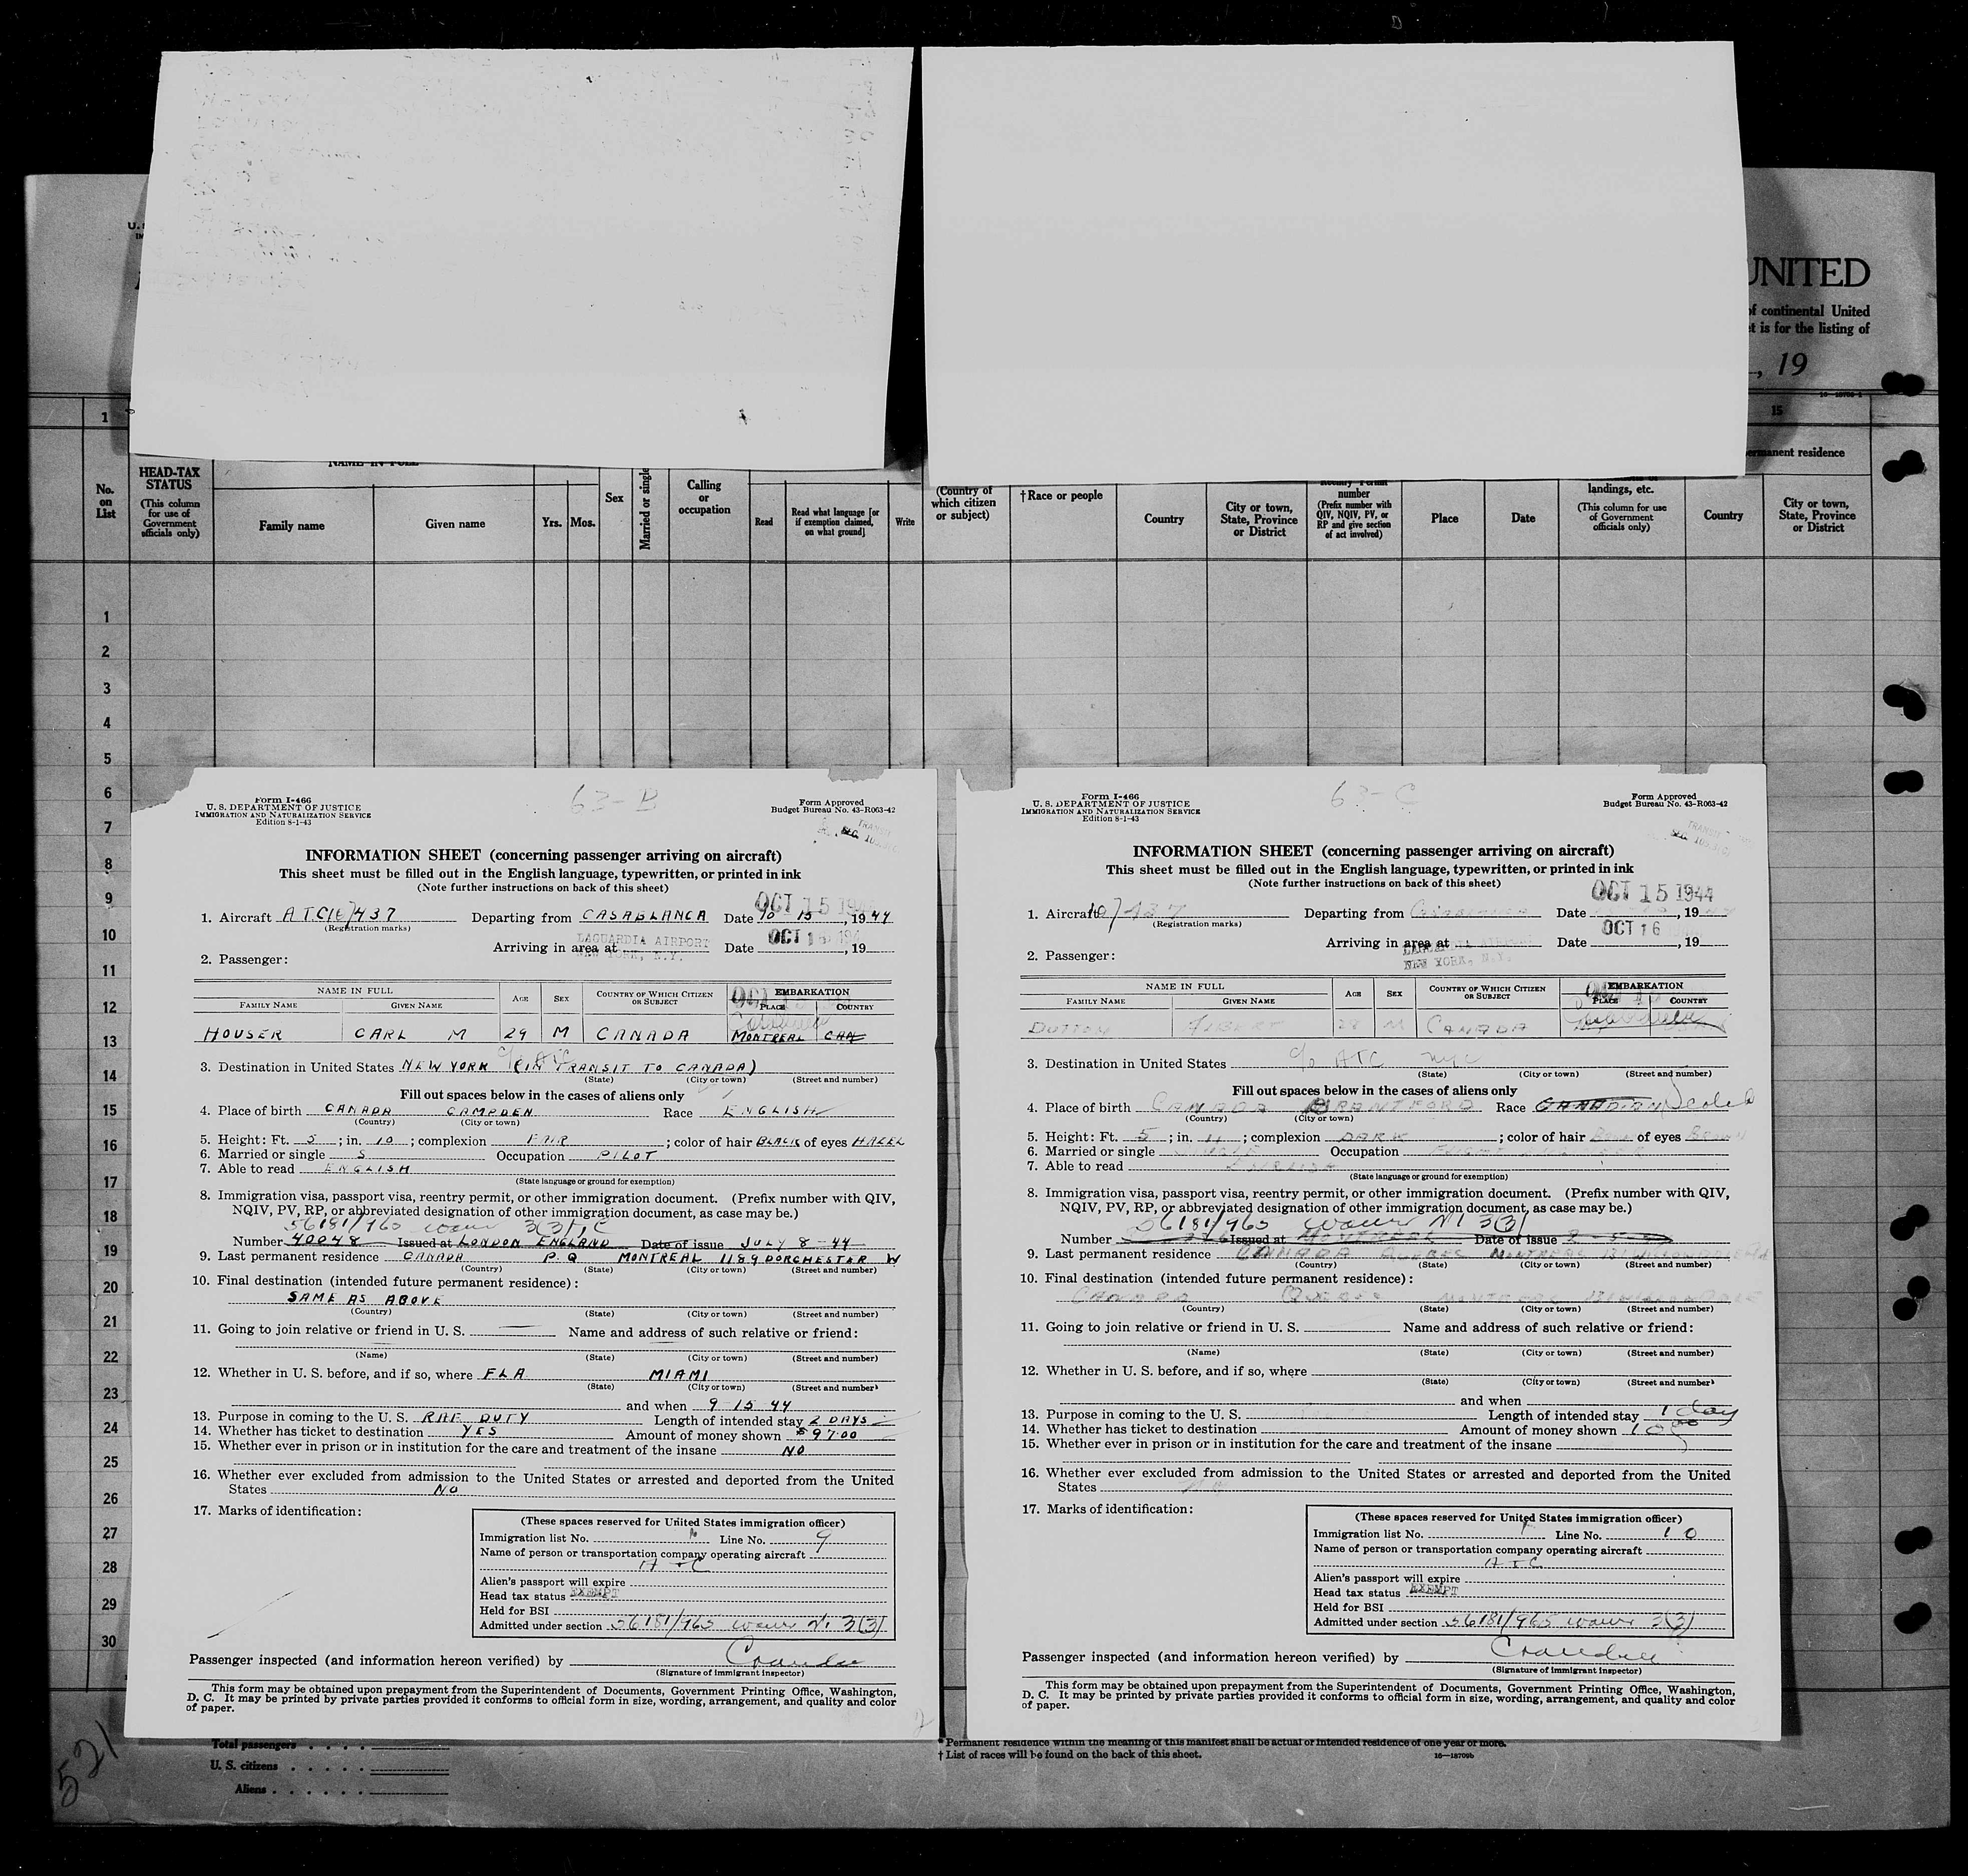 UNITED
of continental United
t is for the listing of
, 19
1
15
No.
on
List
HEAD-TAX
STATUS
(This column
for use of
Government
officials only)
NAME IN FULL
Family name
Given name
Yrs.
Mos.
Sex
Married or single
Calling
or
occupation
Read
Read what language [or
if exemption claimed,
on what ground]
Write
(Country of
which citizen
or subject)
†Race or people
Country
City or town,
State, Province
or District
number
(Prefix number with
QIV, NQIV, PV, or
RP and give section
of act involved)
Place
Date
landings, etc.
(This column for use
of Government
officials only)
permanent residence
Country
City or town,
State, Province
or District
1
2
3
4
5
6
7
8
9
10
11
12
13
14
15
16
17
18
19
20
21
22
23
24
25
26
27
28
29
30
Form I-466
U. S. DEPARTMENT OF JUSTICE
IMMIGRATION AND NATURALIZATION SERVICE
Edition 8-1-43
63-B
Form Approved
Budget Bureau No. 43-R063-42
INFORMATION SHEET (concerning passenger arriving on aircraft)
This sheet must be filled out in the English language, typewritten, or printed in ink
(Note further instructions on back of this sheet)
OCT 15 194
1. Aircraft ATC(16)437 Departing from CASABLANCA Date 10 15, 1944
(Registration marks)
LAGUARDIA AIRPORT OCT 16 194
Arriving in area at Date , 19
NEW YORK, N.Y.
2. Passenger:
NAME IN FULL AGE SEX COUNTRY OF WHICH CITIZEN OR SUBJECT EMBARKATION
FAMILY NAME GIVEN NAME PLACE COUNTRY
Casablanca
HOUSER CARL M 29 M CANADA MONTREAL CAN
c/o ATC
3. Destination in United States NEW YORK (IN TRANSIT TO CANADA)
(State) (City or town) (Street and number)
Fill out spaces below in the cases of aliens only
4. Place of birth CANADA CAMPDEN Race ENGLISH
(Country) (City or town)
5. Height: Ft. 5; in. 10; complexion FAIR; color of hair BLACK of eyes HAZEL
6. Married or single S Occupation PILOT
7. Able to read ENGLISH
(State language or ground for exemption)
8. Immigration visa, passport visa, reentry permit, or other immigration document. (Prefix number with QIV,
NQIV, PV, RP, or abbreviated designation of other immigration document, as case may be.)
56181/965 waiver 3(3)
Number 40048 Issued at LONDON ENGLAND Date of issue JULY 8-44
9. Last permanent residence CANADA P.Q MONTREAL 1189 DORCHESTER W
(Country) (State) (City or town) (Street and number)
10. Final destination (intended future permanent residence):
SAME AS ABOVE
(Country) (State) (City or town) (Street and number)
11. Going to join relative or friend in U. S. Name and address of such relative or friend:
(Name) (State) (City or town) (Street and number)
12. Whether in U. S. before, and if so, where FLA MIAMI
(State) (City or town) (Street and number)
and when 9-15 44
13. Purpose in coming to the U. S. RAF DUTY Length of intended stay 2 DAYS
14. Whether has ticket to destination YES Amount of money shown $97.00
15. Whether ever in prison or in institution for the care and treatment of the insane NO
16. Whether ever excluded from admission to the United States or arrested and deported from the United
States NO
17. Marks of identification:
(These spaces reserved for United States immigration officer)
Immigration list No. Line No. 9
Name of person or transportation company operating aircraft
ATC
Alien's passport will expire
Head tax status EXEMPT
Held for BSI
Admitted under section 56181/965 waiver NI 3(3)
Passenger inspected (and information hereon verified) by
(Signature of immigrant inspector)
This form may be obtained upon prepayment from the Superintendent of Documents, Government Printing Office, Washington,
D. C. It may be printed by private parties provided it conforms to official form in size, wording, arrangement, and quality and color
of paper.
Form I-466
U. S. DEPARTMENT OF JUSTICE
IMMIGRATION AND NATURALIZATION SERVICE
Edition 8-1-43
63-C
Form Approved
Budget Bureau No. 43-R063-42
INFORMATION SHEET (concerning passenger arriving on aircraft)
This sheet must be filled out in the English language, typewritten, or printed in ink
(Note further instructions on back of this sheet)
OCT 15 1944
1. Aircraft 16)437 Departing from Casablanca Date , 19
(Registration marks)
OCT 16
Arriving in area at LAGUARDIA AIRPORT Date , 19
NEW YORK, N.Y.
2. Passenger:
NAME IN FULL AGE SEX COUNTRY OF WHICH CITIZEN OR SUBJECT EMBARKATION
FAMILY NAME GIVEN NAME PLACE COUNTRY
DUTTON ALBERT 28 M CANADA Casablanca
3. Destination in United States c/o ATC NYC
(State) (City or town) (Street and number)
Fill out spaces below in the cases of aliens only
4. Place of birth CANADA BRANTFORD Race CANADIAN Scotch
(Country) (City or town)
5. Height: Ft. 5; in. 11; complexion DARK; color of hair BROWN of eyes BROWN
6. Married or single SINGLE Occupation FLIGHT ENGINEER
7. Able to read ENGLISH
(State language or ground for exemption)
8. Immigration visa, passport visa, reentry permit, or other immigration document. (Prefix number with QIV,
NQIV, PV, RP, or abbreviated designation of other immigration document, as case may be.)
56181/965 waiver NI 3(3)
Number Issued at MONTREAL Date of issue
9. Last permanent residence CANADA QUEBEC MONTREAL
(Country) (State) (City or town) (Street and number)
10. Final destination (intended future permanent residence):
CANADA QUEBEC MONTREAL
(Country) (State) (City or town) (Street and number)
11. Going to join relative or friend in U. S. Name and address of such relative or friend:
(Name) (State) (City or town) (Street and number)
12. Whether in U. S. before, and if so, where
(State) (City or town) (Street and number)
and when
13. Purpose in coming to the U. S. Length of intended stay 1 day
14. Whether has ticket to destination Amount of money shown
15. Whether ever in prison or in institution for the care and treatment of the insane
16. Whether ever excluded from admission to the United States or arrested and deported from the United
States NO
17. Marks of identification:
(These spaces reserved for United States immigration officer)
Immigration list No. Line No. 10
Name of person or transportation company operating aircraft
ATC
Alien's passport will expire
Head tax status EXEMPT
Held for BSI
Admitted under section 56181/965 waiver 3(3)
Passenger inspected (and information hereon verified) by
(Signature of immigrant inspector)
This form may be obtained upon prepayment from the Superintendent of Documents, Government Printing Office, Washington,
D. C. It may be printed by private parties provided it conforms to official form in size, wording, arrangement, and quality and color
of paper.
521
Total passengers
U. S. citizens
Aliens
* Permanent residence within the meaning of this manifest shall be actual or intended residence of one year or more.
† List of races will be found on the back of this sheet.
16—18709b